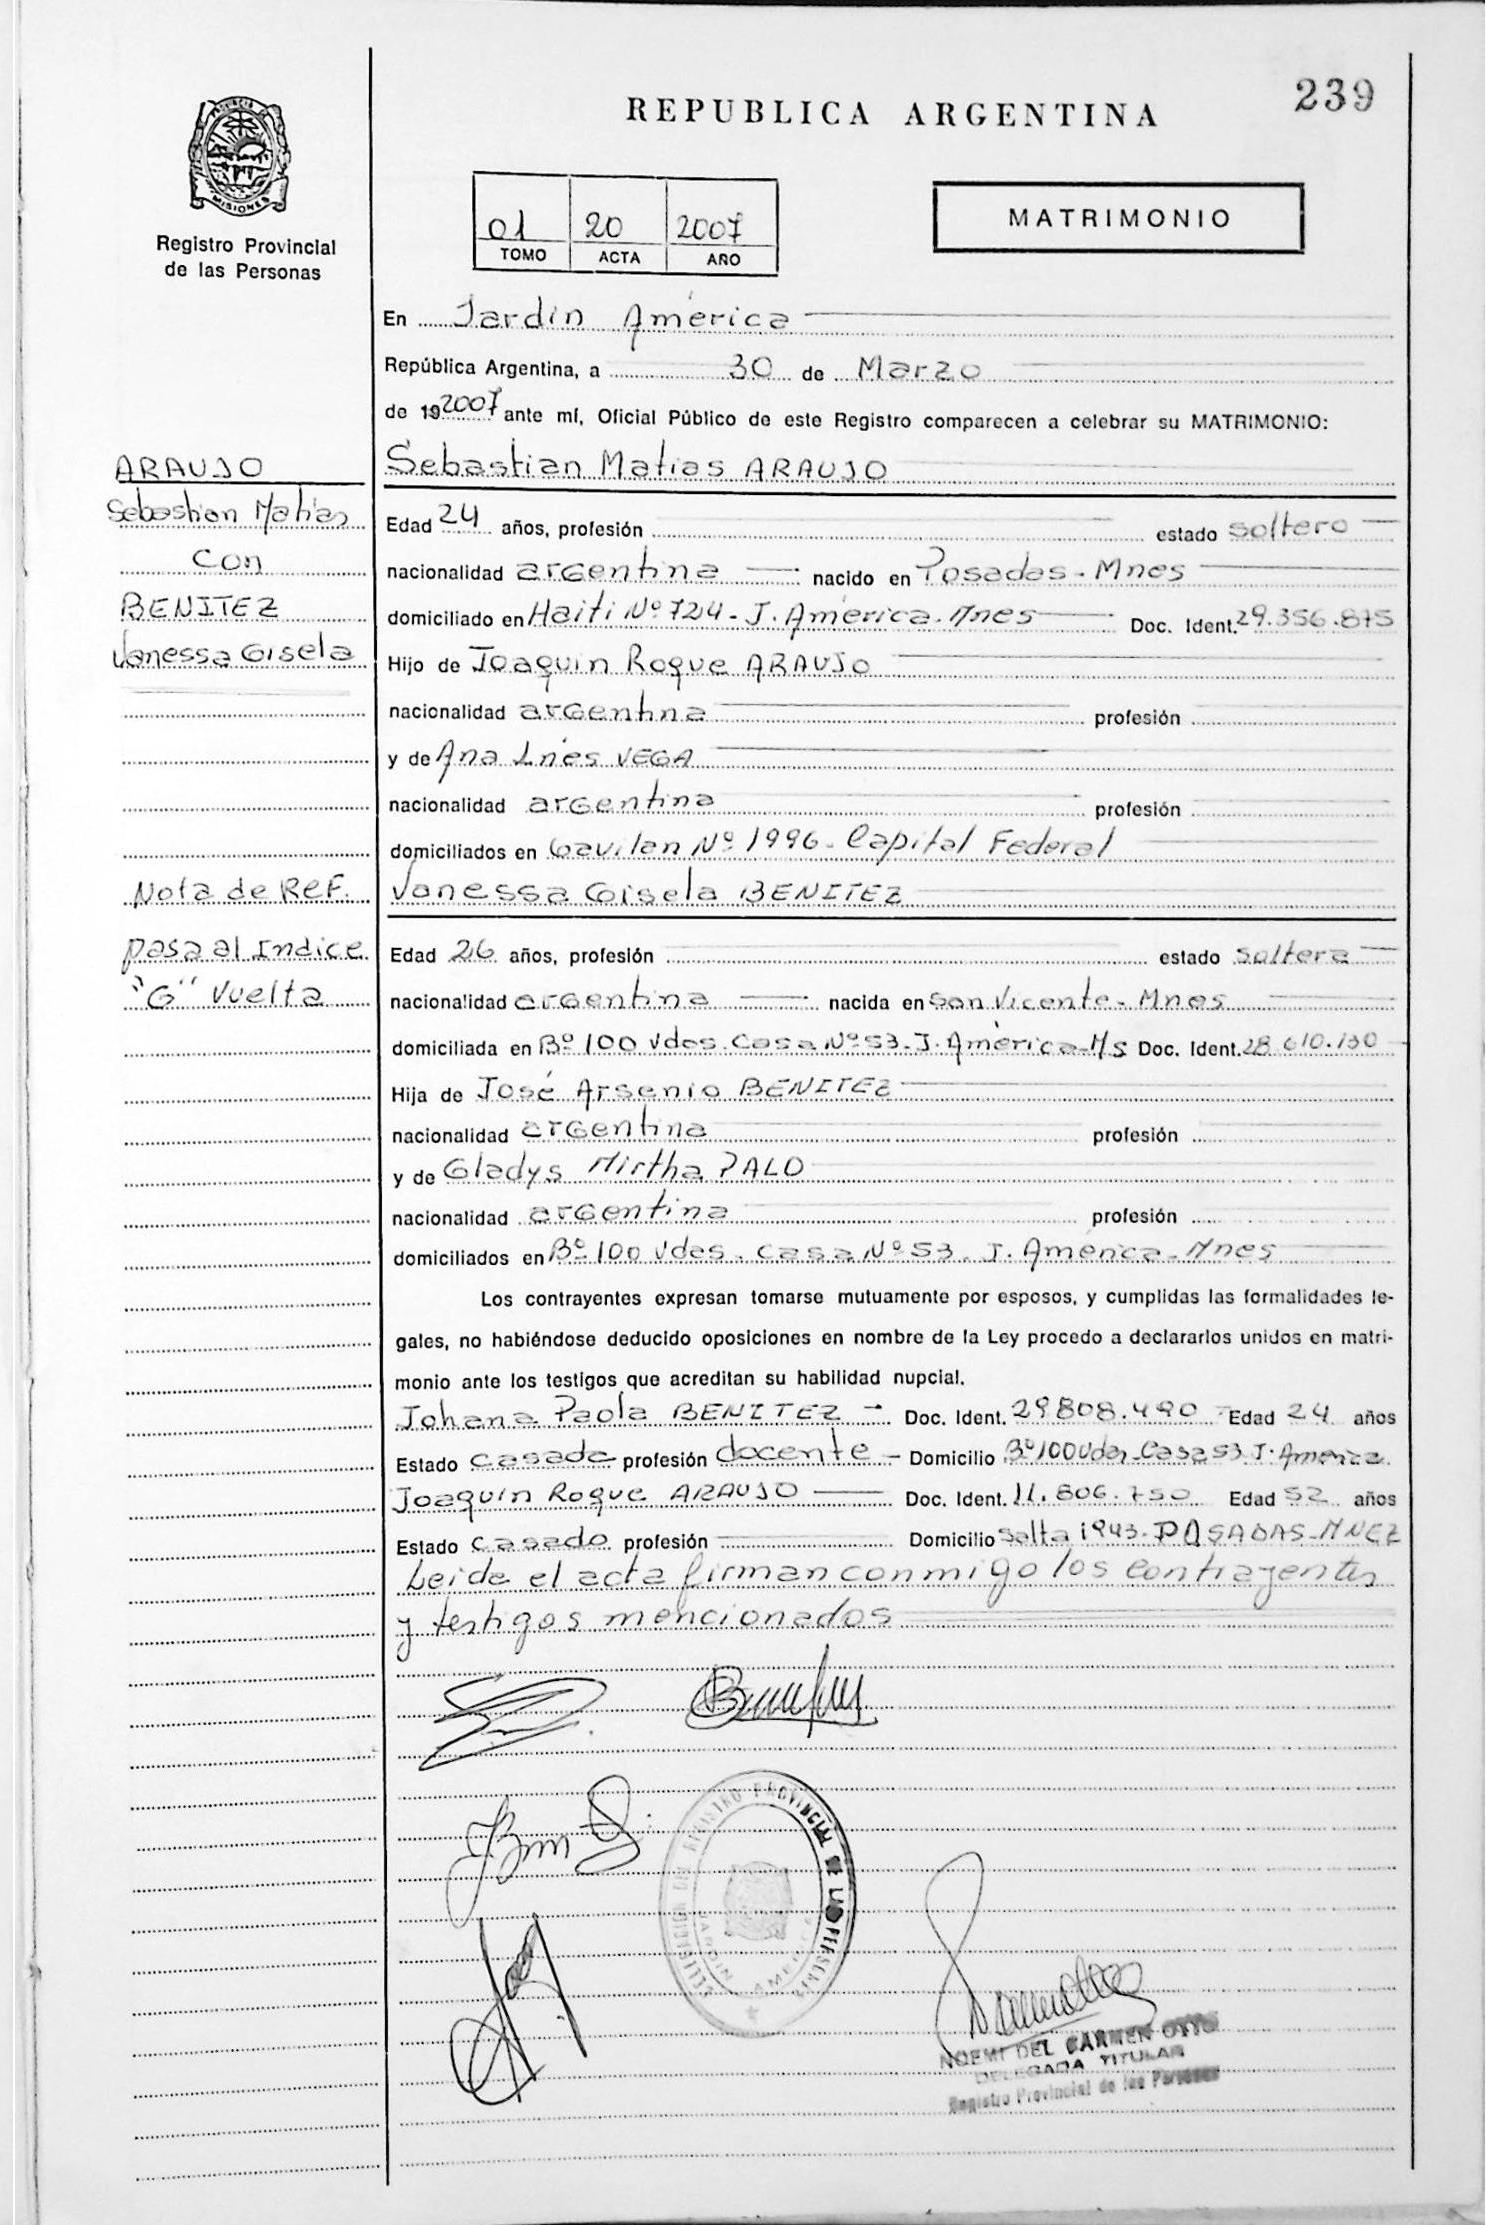 239
REPUBLICA ARGENTINA
MISIONES
Registro Provincial
de las Personas
01 20 2007
TOMO ACTA AÑO
MATRIMONIO
En Jardín América
República Argentina, a 30 de Marzo
de 192007 ante mí, Oficial Público de este Registro comparecen a celebrar su MATRIMONIO:
Sebastian Matias ARAUJO
ARAUJO
Sebastian Matias
Con
BENITEZ
Vanessa Gisela
Edad 24 años, profesión estado soltero
nacionalidad argentina nacido en Posadas - Mnes
domiciliado en Haiti Nº 724 - J. América. Mnes Doc. Ident. 29.356.875
Hijo de Joaquin Roque ARAUJO
nacionalidad argentina profesión
y de Ana Inés VEGA
nacionalidad argentina profesión
domiciliados en Gavilan Nº 1996 - Capital Federal
Vanessa Gisela BENITEZ
Nota de Ref.
pasa al Indice
"G" Vuelta
Edad 26 años, profesión estado soltera
nacionalidad argentina nacida en San Vicente - Mnes
domiciliada en Bº 100 Vdas. Casa Nº 53 - J. América - Ms Doc. Ident. 28.610.130
Hija de José Arsenio BENITEZ
nacionalidad argentina profesión
y de Gladys Mirtha PALO
nacionalidad argentina profesión
domiciliados en Bº 100 Vdas. Casa Nº 53. J. América - Mnes
Los contrayentes expresan tomarse mutuamente por esposos, y cumplidas las formalidades le-
gales, no habiéndose deducido oposiciones en nombre de la Ley procedo a declararlos unidos en matri-
monio ante los testigos que acreditan su habilidad nupcial.
Johana Paola BENITEZ - Doc. Ident. 29808.490 - Edad 24 años
Estado casada profesión docente - Domicilio Bº 100 Vdas - Casa 53 J. America
Joaquin Roque ARAUJO Doc. Ident. 11.806.750 Edad 52 años
Estado casado profesión Domicilio Salta 1943 - POSADAS - MNEZ
Leida el acta firman conmigo los contrayentes
y testigos mencionados
REGISTRO PROVINCIAL DE LAS PERSONAS
JARDIN AMERICA
NOEMI DEL CARMEN OTTO
DELEGADA TITULAR
Registro Provincial de las Personas